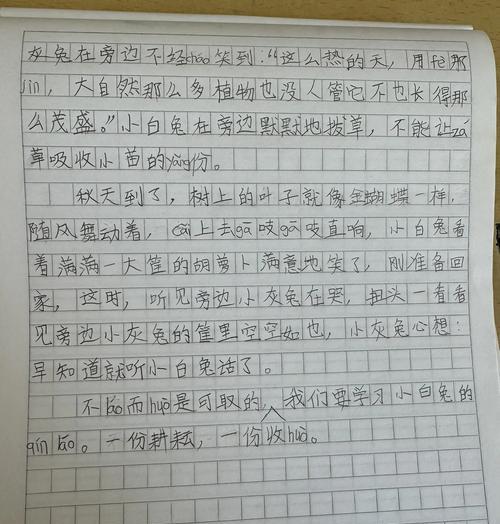 灰兔在旁边不经cháo笑到：“这么热的天，用fèi那
jìn，大自然那么多植物也没人管它不也长得那
么茂盛。”小白兔在旁边默默地拔草，不能让zá
草吸收小苗的yǎng份。
秋天到了，树上的叶子就像金蝴蝶一样，
随风舞动着，cǎi上去gā吱gā吱直响，小白兔看
着满满一大筐的胡萝卜满意地笑了，刚准备回
家，这时，听见旁边小灰兔在哭，扭头一看看
见旁边小灰兔的筐里空空如也，小灰兔心想：
早知道就听小白兔话了。
不láo而huò是可取的，我们要学习小白兔的
qín láo。一份耕耘，一份收huò。